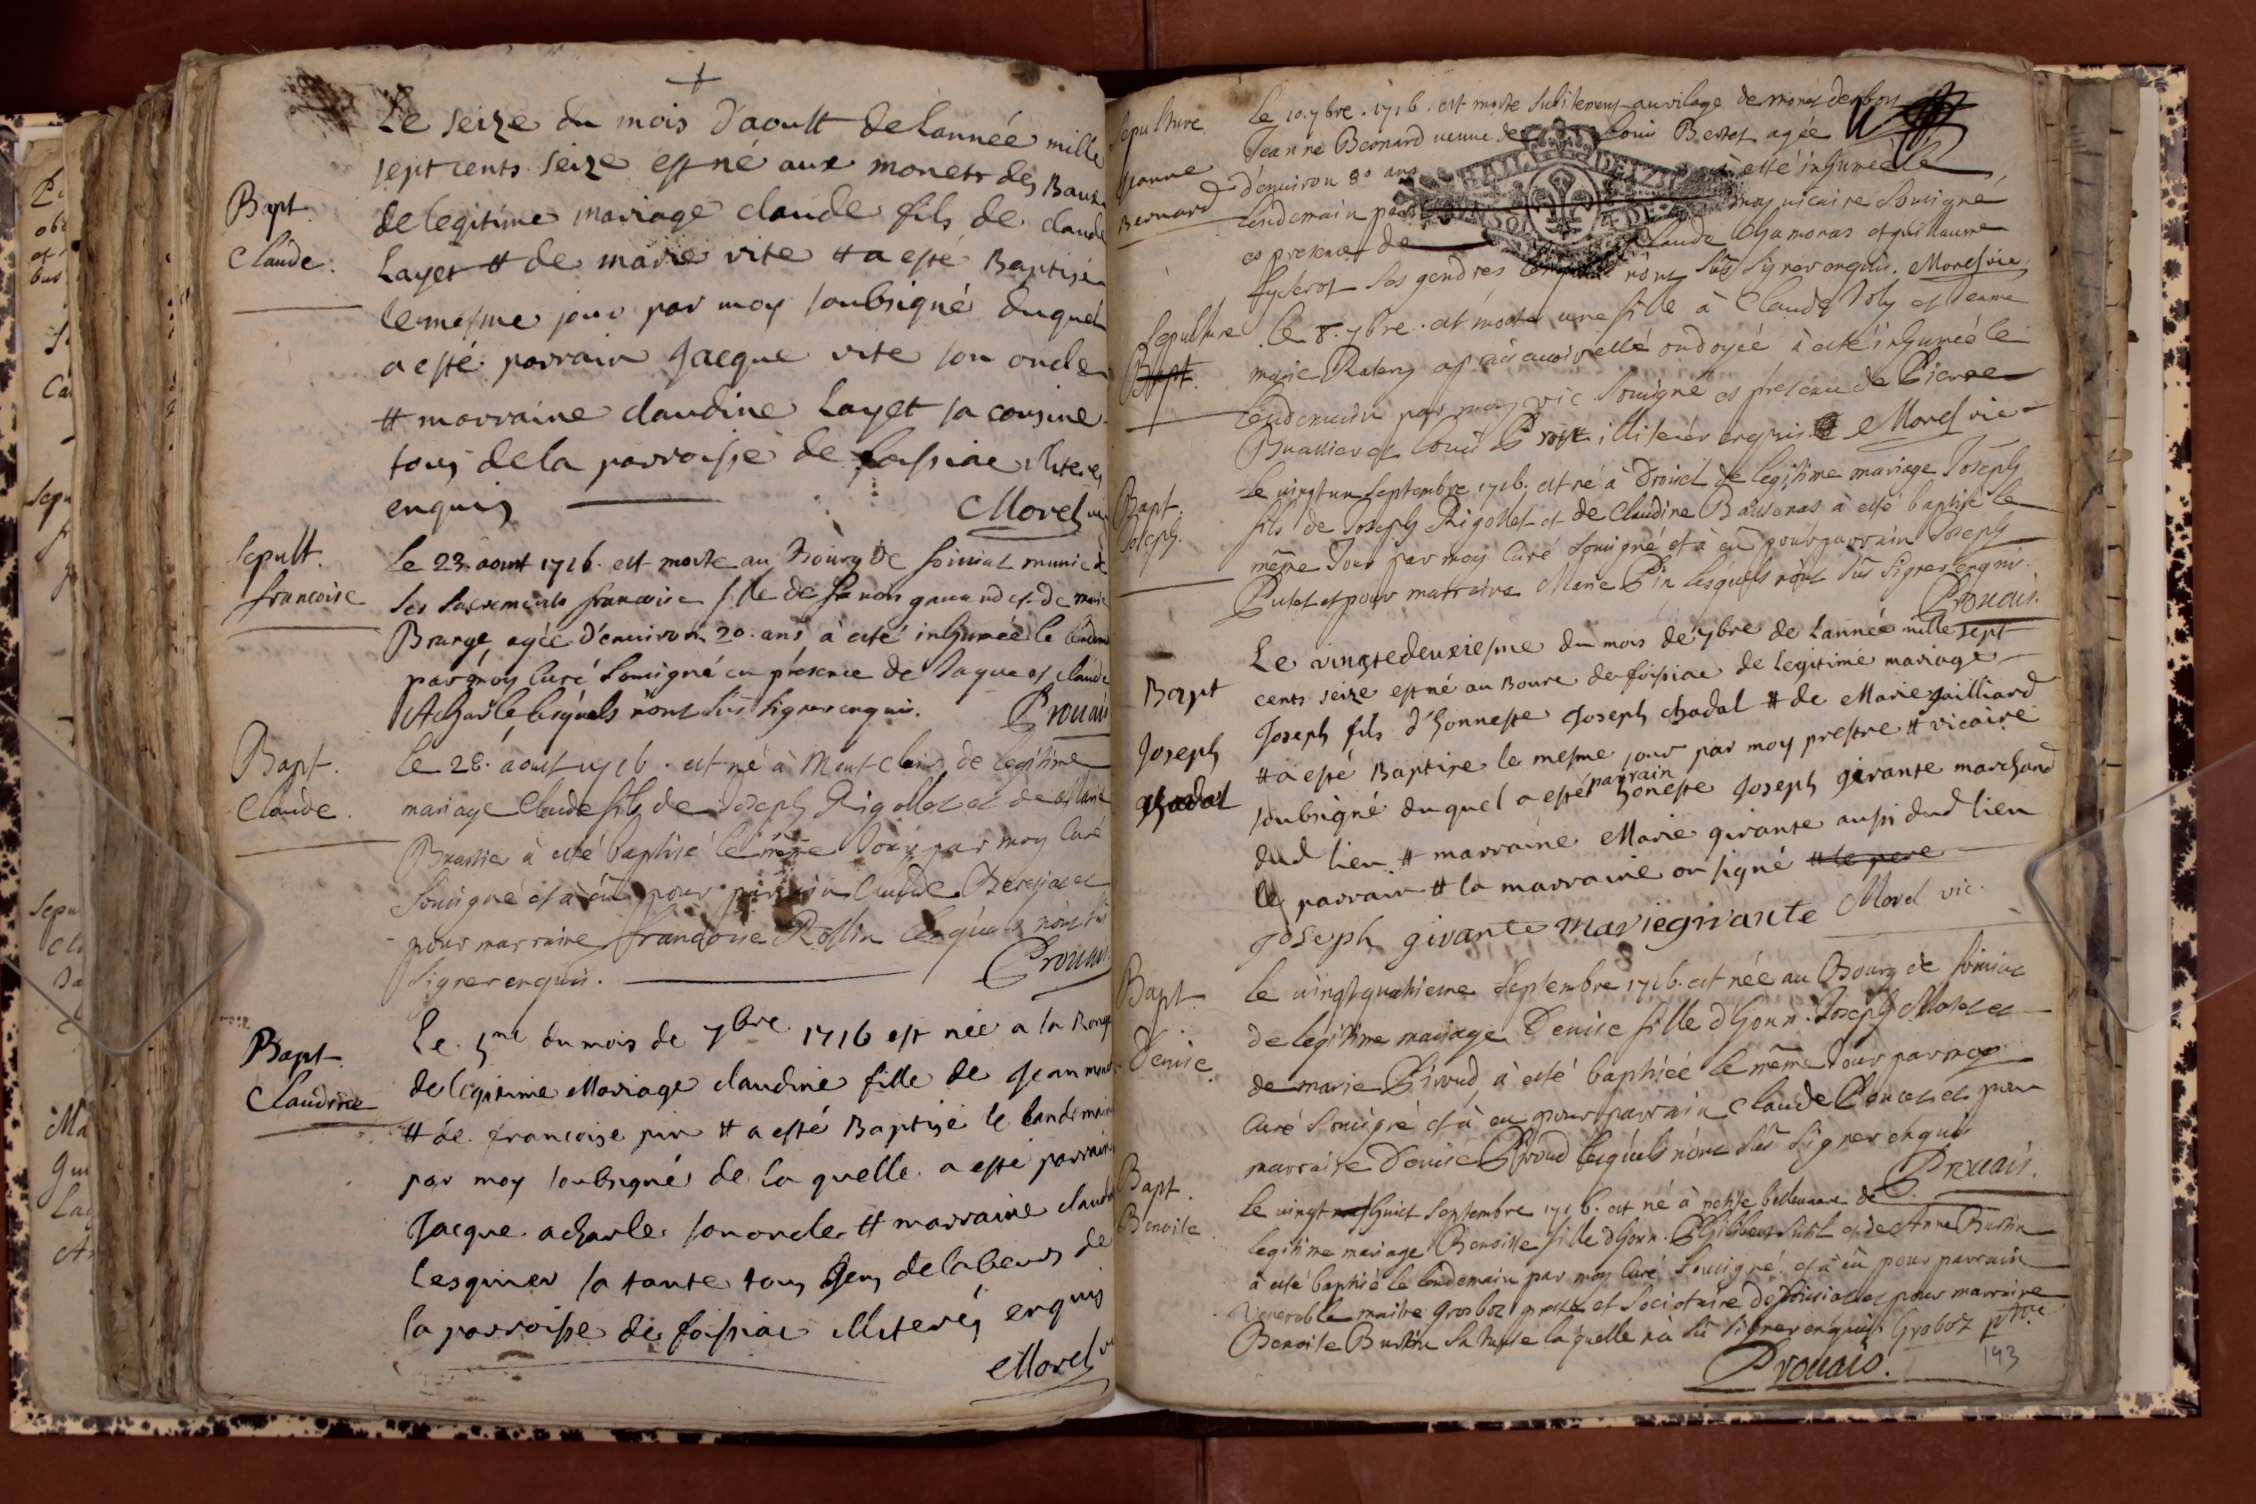 Le seize du mois d'aoust de lannée mille
sept cents seize est né aux monets des Baux
Bapt.
Claude.
de legitime mariage claude fils de claude
Layet et de marie vite et a esté Baptisé
le mesme jour par moy soubsigné duquel
a esté parrain Jacque vite son oncle
et marraine claudine Layet sa cousine
tous de la parroisse de foissiac illiteres
enquis
Morel vic
Sepult.
francoise
Le 23. aoust 1716. est morte au Bourg de foissiat munie de
ses sacrements francoise fille de et de marie
Brange, agée d'environ 20. ans à esté inhumée le lendem
par moy Curé soussigné en présence de Jaque et claude
Acharle lesquels n'ont sçu signer enquis. Prouais
Bapt.
Claude.
le 28. aoust 1716. est né à Montclaud de legitime
mariage Claude fils de Joseph Rigollet et de
à esté baptisé le même Jour par moy Curé
soussigné et à eu pour parrain Claude et
pour marraine francoise Rossin lesquels n'ont sçu
signer enquis. Prouais.
Bapt.
Claudine
Le 5me du mois de 7bre 1716 est née a la
de legitime Mariage claudine fille de Jean
et de francoise pin et a esté Baptisé le landemain
par moy soubsigné de la quelle a esté parrain
Jacque acharle son oncle et marraine claud
Lesquiner sa tante tous Gens de labeurs de
la parroisse de foissiac illiterés enquis
Morel
Sepulture
Jeanne
Bernard
Le 10. 7bre. 1716. est morte subitement au vilage de
Jeanne Bernard veuve de Louis Bertet agée
d'environ 80 ans à esté inhumée le
lendemain par moy vicaire soussigné
en presence de Claude Chamoras et guillaume
ses gendres n'ont sçu signer enquis. Morel vic.
Sepulture
Bapt.
Le 8. 7bre. est morte une fille à Claude Joly et Jeanne
marie Ratery apres avoir esté ondoyée à esté inhumée le
lendemain par moy vic soussigné en présence de Pierre
et Louis illiterés enquis. Morel vic
Bapt.
Joseph.
Le vingt un septembre 1716. est né à Drouet de legitime mariage Joseph
fils de Joseph Rigollet et de Claudine à esté baptisé le
même Jour par moy Curé soussigné et à eu pour parrain Joseph
Putet et pour marraine Marie Pin lesquels n'ont sçu signer enquis.
Prouais.
Bapt
Joseph
chadal
Le vingtedeuxiesme du mois de 7bre de lannée mille sept
cents seize est né au Bourc de foissiac de legitime mariage
Joseph fils d'honneste Joseph chadal et de Marie Gailliard
et a esté Baptise le mesme jour par moy prestre et vicaire
soubsigné duquel a esté parrain honeste Joseph givante marchand
dud lieu et marraine Marie givante aussi dud lieu
le parrain et la marraine on signé et le pere
Joseph givante marie givante Morel vic.
Bapt.
Denise.
Le vingt quatrieme septembre 1716. est née au Bourg de foissiac
de legitime mariage Denise fille d'honn. Joseph Morel et
de marie Piroud, à esté baptisée le même Jour par moy
Curé soussigné et à eu pour parrain Claude Poncet et pour
marraine Denise Piroud lesquels n'ont sçu signer enquis
Prouais.
Bapt.
Benoite
Le vingt huict septembre 1716. est né à petite de
legitime mariage Benoitte fille d'honn. Philibert et de Anne Burtin
à esté baptisé le lendemain par moy Curé soussigné et à eu pour parrain
Venerable maitre Grosboz prestre et societaire de foissiat et pour marraine
Benoite Burtin sa tante laquelle n'à sçu signer enquis. Groboz ptre
Prouais.
143